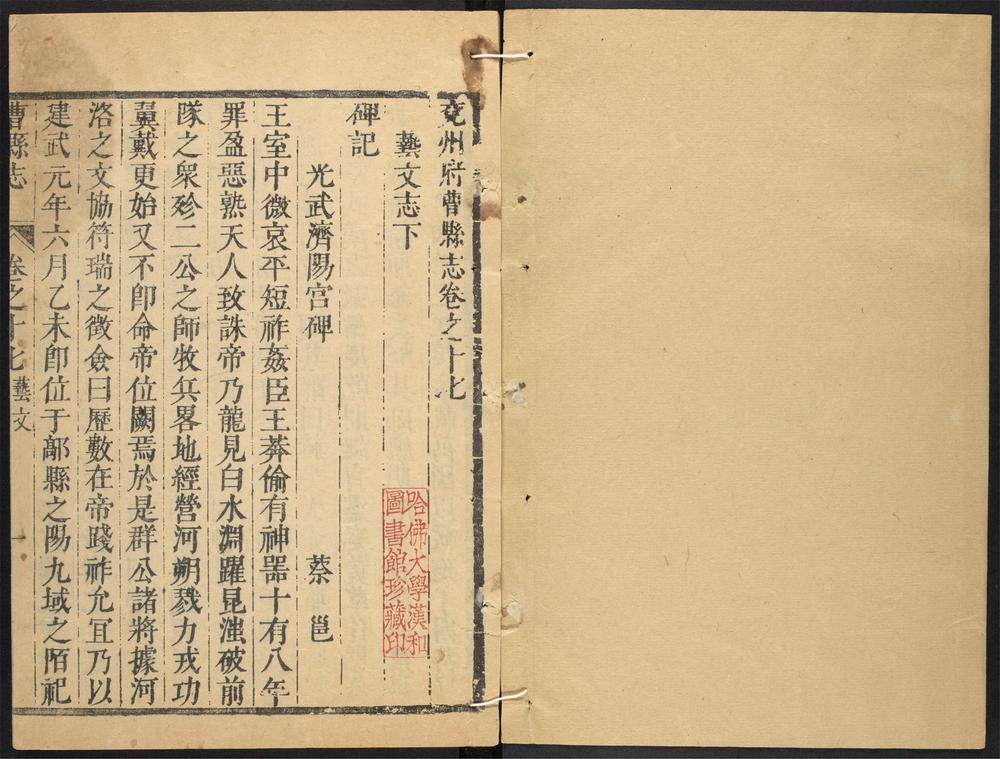 兗州府曹縣志卷之十七
藝文志下
碑記
光武濟陽宮碑 蔡邕
王室中微哀平短祚姦臣王莽偷有神噐十有八年
罪盈惡熟天人致誅帝乃龍見白水淵躍昆滍破前
隊之衆殄二公之師牧兵畧地經營河朔戮力戎功
翼戴更始又不卽命帝位闕焉於是群公諸將據河
洛之文協符瑞之徵僉曰歷數在帝踐祚允宜乃以
建武元年六月乙未卽位于鄗縣之陽九域之陌祀
曹縣志 卷之十七 藝文
哈佛大學漢和
圖書館珍藏印